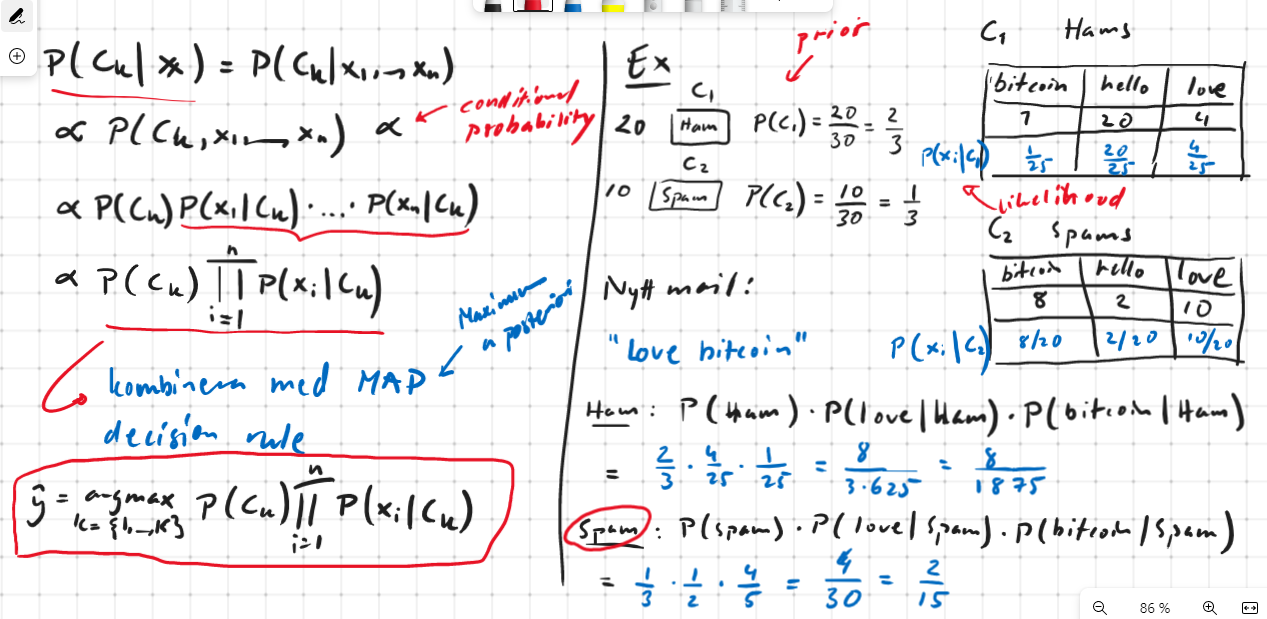 P(Cₖ|x) = P(Cₖ|x₁,...,xₙ)
∝ P(Cₖ,x₁,...,xₙ) ∝
← conditional
probability
∝ P(Cₖ)P(x₁|Cₖ)·....·P(xₙ|Cₖ)
∝ P(Cₖ) ∏ᵢ₌₁ⁿ P(xᵢ|Cₖ)
Maximum
a posteriori
kombinera med MAP
decision rule
ŷ = argmax k={1,...,K} P(Cₖ) ∏ᵢ₌₁ⁿ P(xᵢ|Cₖ)
Ex
prior
C₁
20 Ham P(C₁) = 20/30 = 2/3
C₂
10 Spam P(C₂) = 10/30 = 1/3
C₁ Hams
bitcoin hello love
1 20 4
P(xᵢ|C₁) 1/25 20/25 4/25
Likelihood
C₂ Spams
bitcoin hello love
8 2 10
P(xᵢ|C₂) 8/20 2/20 10/20
Nytt mail:
"love bitcoin"
Ham: P(Ham)·P(love|Ham)·P(bitcoin|Ham)
= 2/3 · 4/25 · 1/25 = 8/3·625 = 8/1875
Spam: P(spam)·P(love/spam)·P(bitcoin/Spam)
= 1/3 · 1/2 · 4/5 = 4/30 = 2/15
86 %